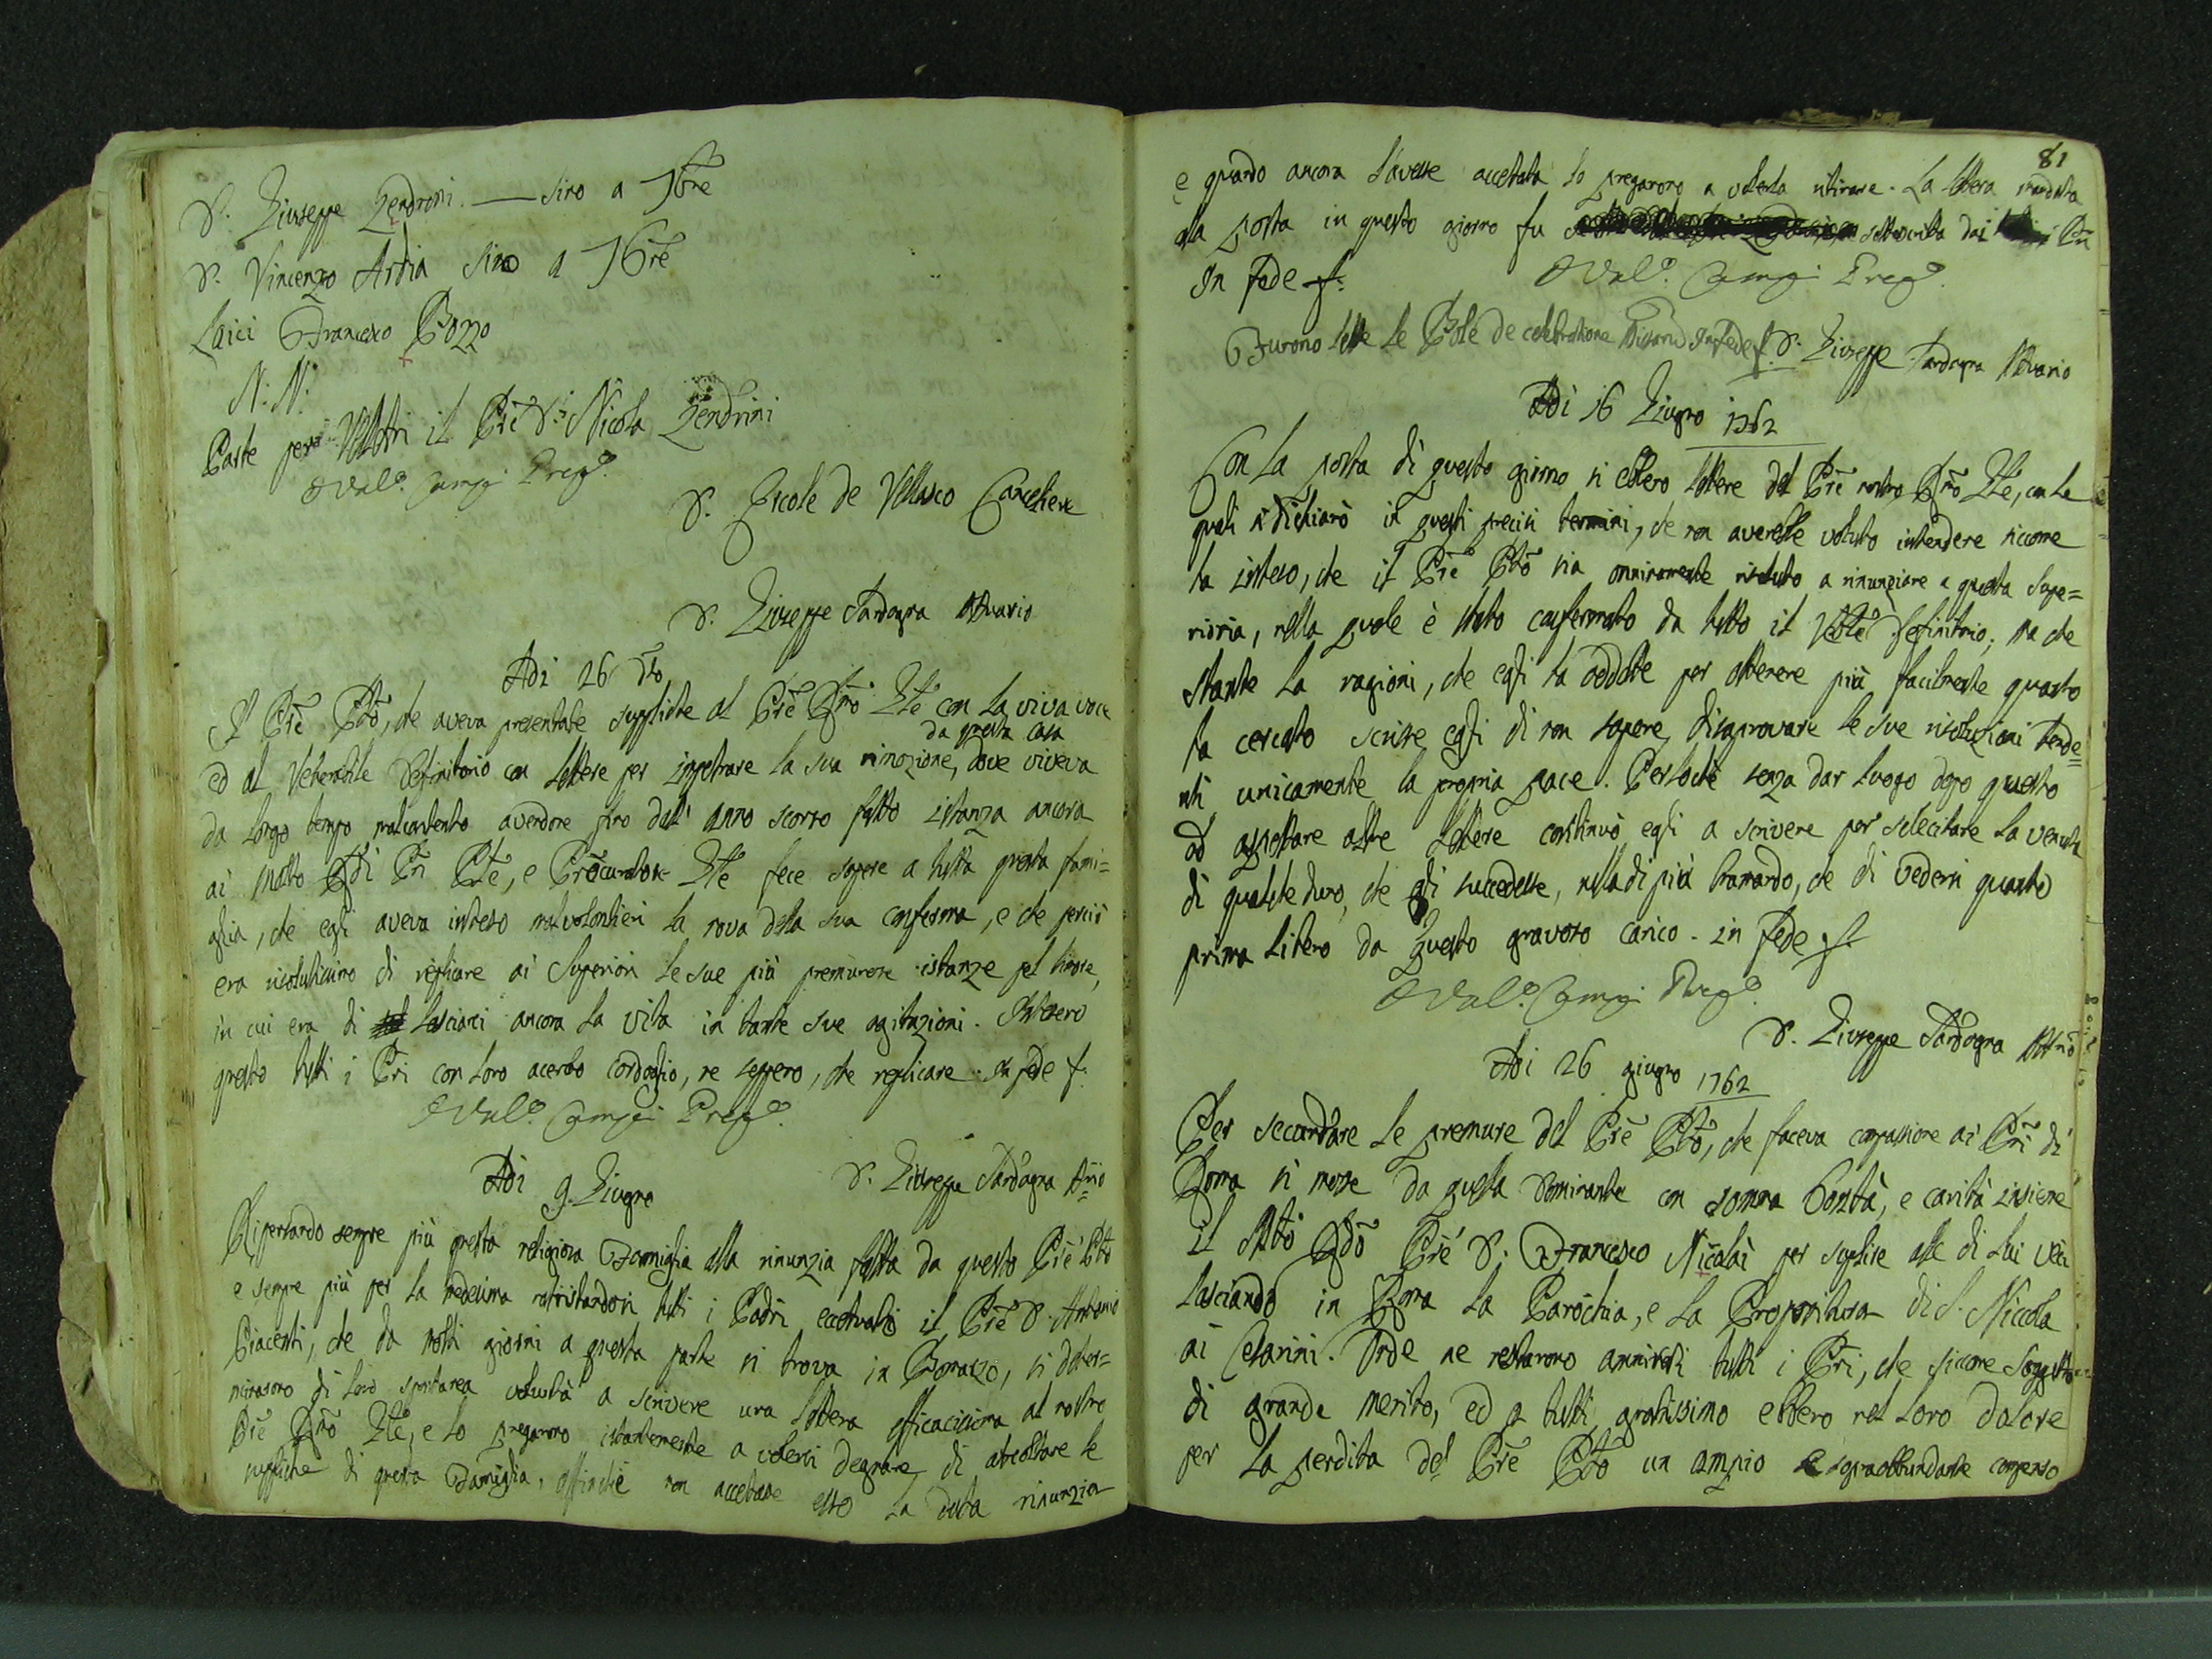 D. Giuseppe Zendroni. — sino a 9bre
D. Vincenzo Ardia sino a 9bre
Laici Francesco Bozzo
N: N:
Parte per Velletri il Prē D: Nicola Zendrini
Oval.º Camp Prep.º
D. Ercole de Vellasco Cancelliere
D. Giuseppe Sardagna Attuario
Adi 26 do
Il Prē Ptō, che aveva presentate suppliche al Prē Rmō Glē con la viva voce
da questa casa
ed al Venerabile Definitorio con lettere per impetrare la sua rimozione, dove viveva
da longo tempo malcontento avendone fino dall' anno scorso fatto istanza ancora
ai Molto Rdi Pri Pte, e Procuratore Gle fece sapere a tutta questa fami-
glia, che egli aveva inteso mal volontieri la nova della sua conferma, e che perciò
era risolutissimo di replicare ai Superiori le sue più premurose istanze pel timore,
in cui era di lasciarci ancora la vita in tante sue agitazioni. Intesero
questo tutti i Pri con loro acerbo cordoglio, ne seppero, che replicare. In fede f.
Oval.º Camp Prep.º
D. Giuseppe Sardagna Attrio
Adi 9. Giugno
Ripensando sempre più questa religiosa Famiglia alla rinunzia fatta da questo Prē Ptō
e sempre più per la medesima rattristandosi tutti i Padri eccettuato il Prē D. Antonio
Piacenti, che da molti giorni a questa parte si trova in Bomarzo, si deter=
minarono di loro spontanea volontà a scrivere una lettera efficacissima al nostro
Prē Rmō Glē, e lo pregarono istantemente a volersi degnare di ascoltare le
suppliche di questa Famiglia, affinchè non accettasse esso la detta rinunzia
81
e quando ancora l'avesse accettata lo pregarono a volerla ritirare. La lettera mandata
alla posta in questo giorno fu sottoscritta dai Pri
In fede f.
Oval.º Camp Prep.º
Furono lette le Bolle de celebratione Missarum In fede f. D. Giuseppe Sardagna Attuario
Adi 16 Giugno 1762
Con la posta di questo giorno si ebbero lettere del Prē nostro Rmō Glē, con le
quali si dichiarò in questi precisi termini, che non averebbe voluto intendere siccome
ha inteso, che il Prē Ptō sia onninamente risoluto a rinunziare a questa Supe=
rioria, nella quale è stato confermato da tutto il Vble Definitorio; ma che
stante la ragioni, che egli ha addotte per ottenere più facilmente quanto
ha cercato scrisse egli di non sapere disaprovare le sue risoluzioni tende=
nti unicamente la propria pace. Perlochè senza dar luogo dopo questo
ad aspettare altre lettere continuò egli a scrivere per solecitare la venuta
di qualche duno, che gli succedesse, nulla di più bramando, che di vedersi quanto
prima libero da questo gravoso carico. in fede f.
Oval.º Camp Prep.º
D. Giuseppe Sardagna Attrio
Adi 26 giugno 1762
Per secundare le premure del Prē Ptō, che faceva compassione ai Pri di
Roma si mosse da quella Dominante con somma bontà, e carità insieme
il Mtō Rdō Prē D. Francesco Nicolai per suplire alle di lui veci
lasciando in Roma la Parochia, e la Propositura di S. Niccola
ai Cesarini. Onde ne restarono ammirati tutti i Pri, che siccome Soggetto
di grande merito, ed a tutti gratissimo ebbero nel loro dolore
per la perdita del Prē Ptō un ampio e sopraabbundante compenso